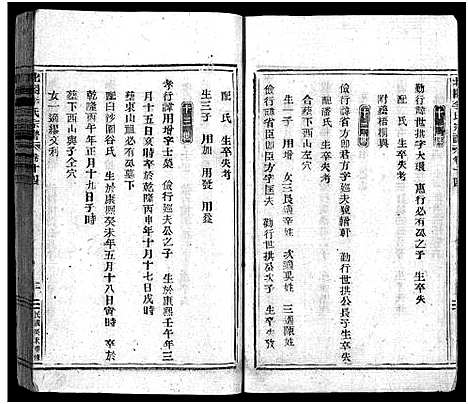 勤行諱世拱字大環 惠行必有忌之子 生卒失
考
配氏 生卒失考
附葬梧桐奧
十二世
儉行諱方郎君方字廵夫號轎軒 勤行世拱公長子生卒失
考
葬下西山左穴
配潘氏 生卒失考
生一子 用增 女三長適 姓 次適吳姓 三適陳姓
儉行諱省臣郎臣字匡夫 勤行世拱公次子生卒失考
配氏 生卒失考
生三子 用加 用發 用登
十三世
孝行諱用增字士榮 儉行廵夫公之子 生於康熙壬午年三
月十五日亥時卒於乾隆丙申年十月十七日戌時
葬東山垣必有忌墓下
配白沙園谷氏 生於康熙癸未年五月十八日寅時 卒於
乾隆丙午年正月十九日子時
葬下西山與子仝穴
女一 適繆文利